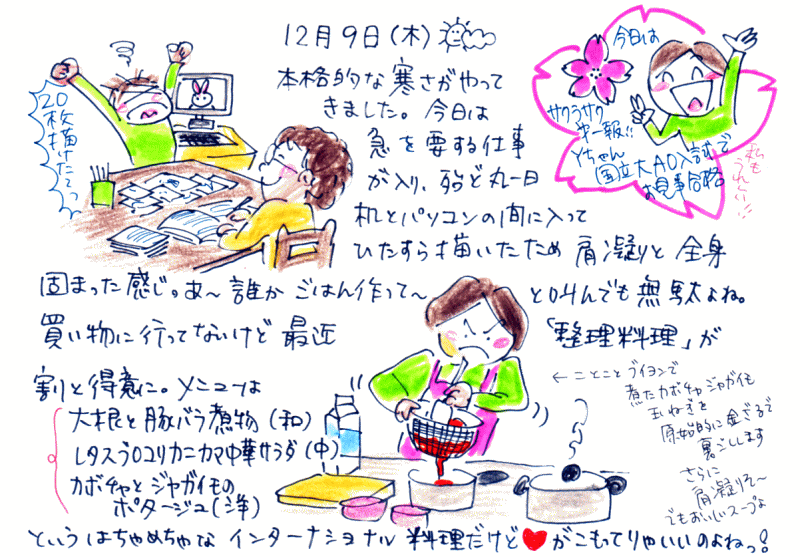 12月9日(木)
本格的な寒さがやって
きました。今日は
急を要する仕事
が入り、殆ど丸一日
机とパソコンの間に入って
ひたすら描いたため 肩凝りと 全身
固まった感じ。あ〜誰か ごはん作って〜 と叫んでも無駄よね。
買い物に行ってないけど 最近 「整理料理」が
割と得意に。メニューは
大根と豚バラ煮物(和)
レタスうロコリカニカマ中華サラダ(中)
カボチャとジャガイモの
ポタージュ(洋)
というはちゃめちゃな インターナショナル 料理だけど♥がこもってりゃいいのよねっ!!
20枚描けたてっ
今日は
サクラサク
第一報!!
Yちゃん
国立大AO入試で
お見事合格
私も
うれしい!!
←ことことブイヨンで
煮たカボチャジャガイモ
玉ねぎを
原始的に金ざるで
裏ごしします
さらに
肩凝りそ〜
でもおいしいスープよ